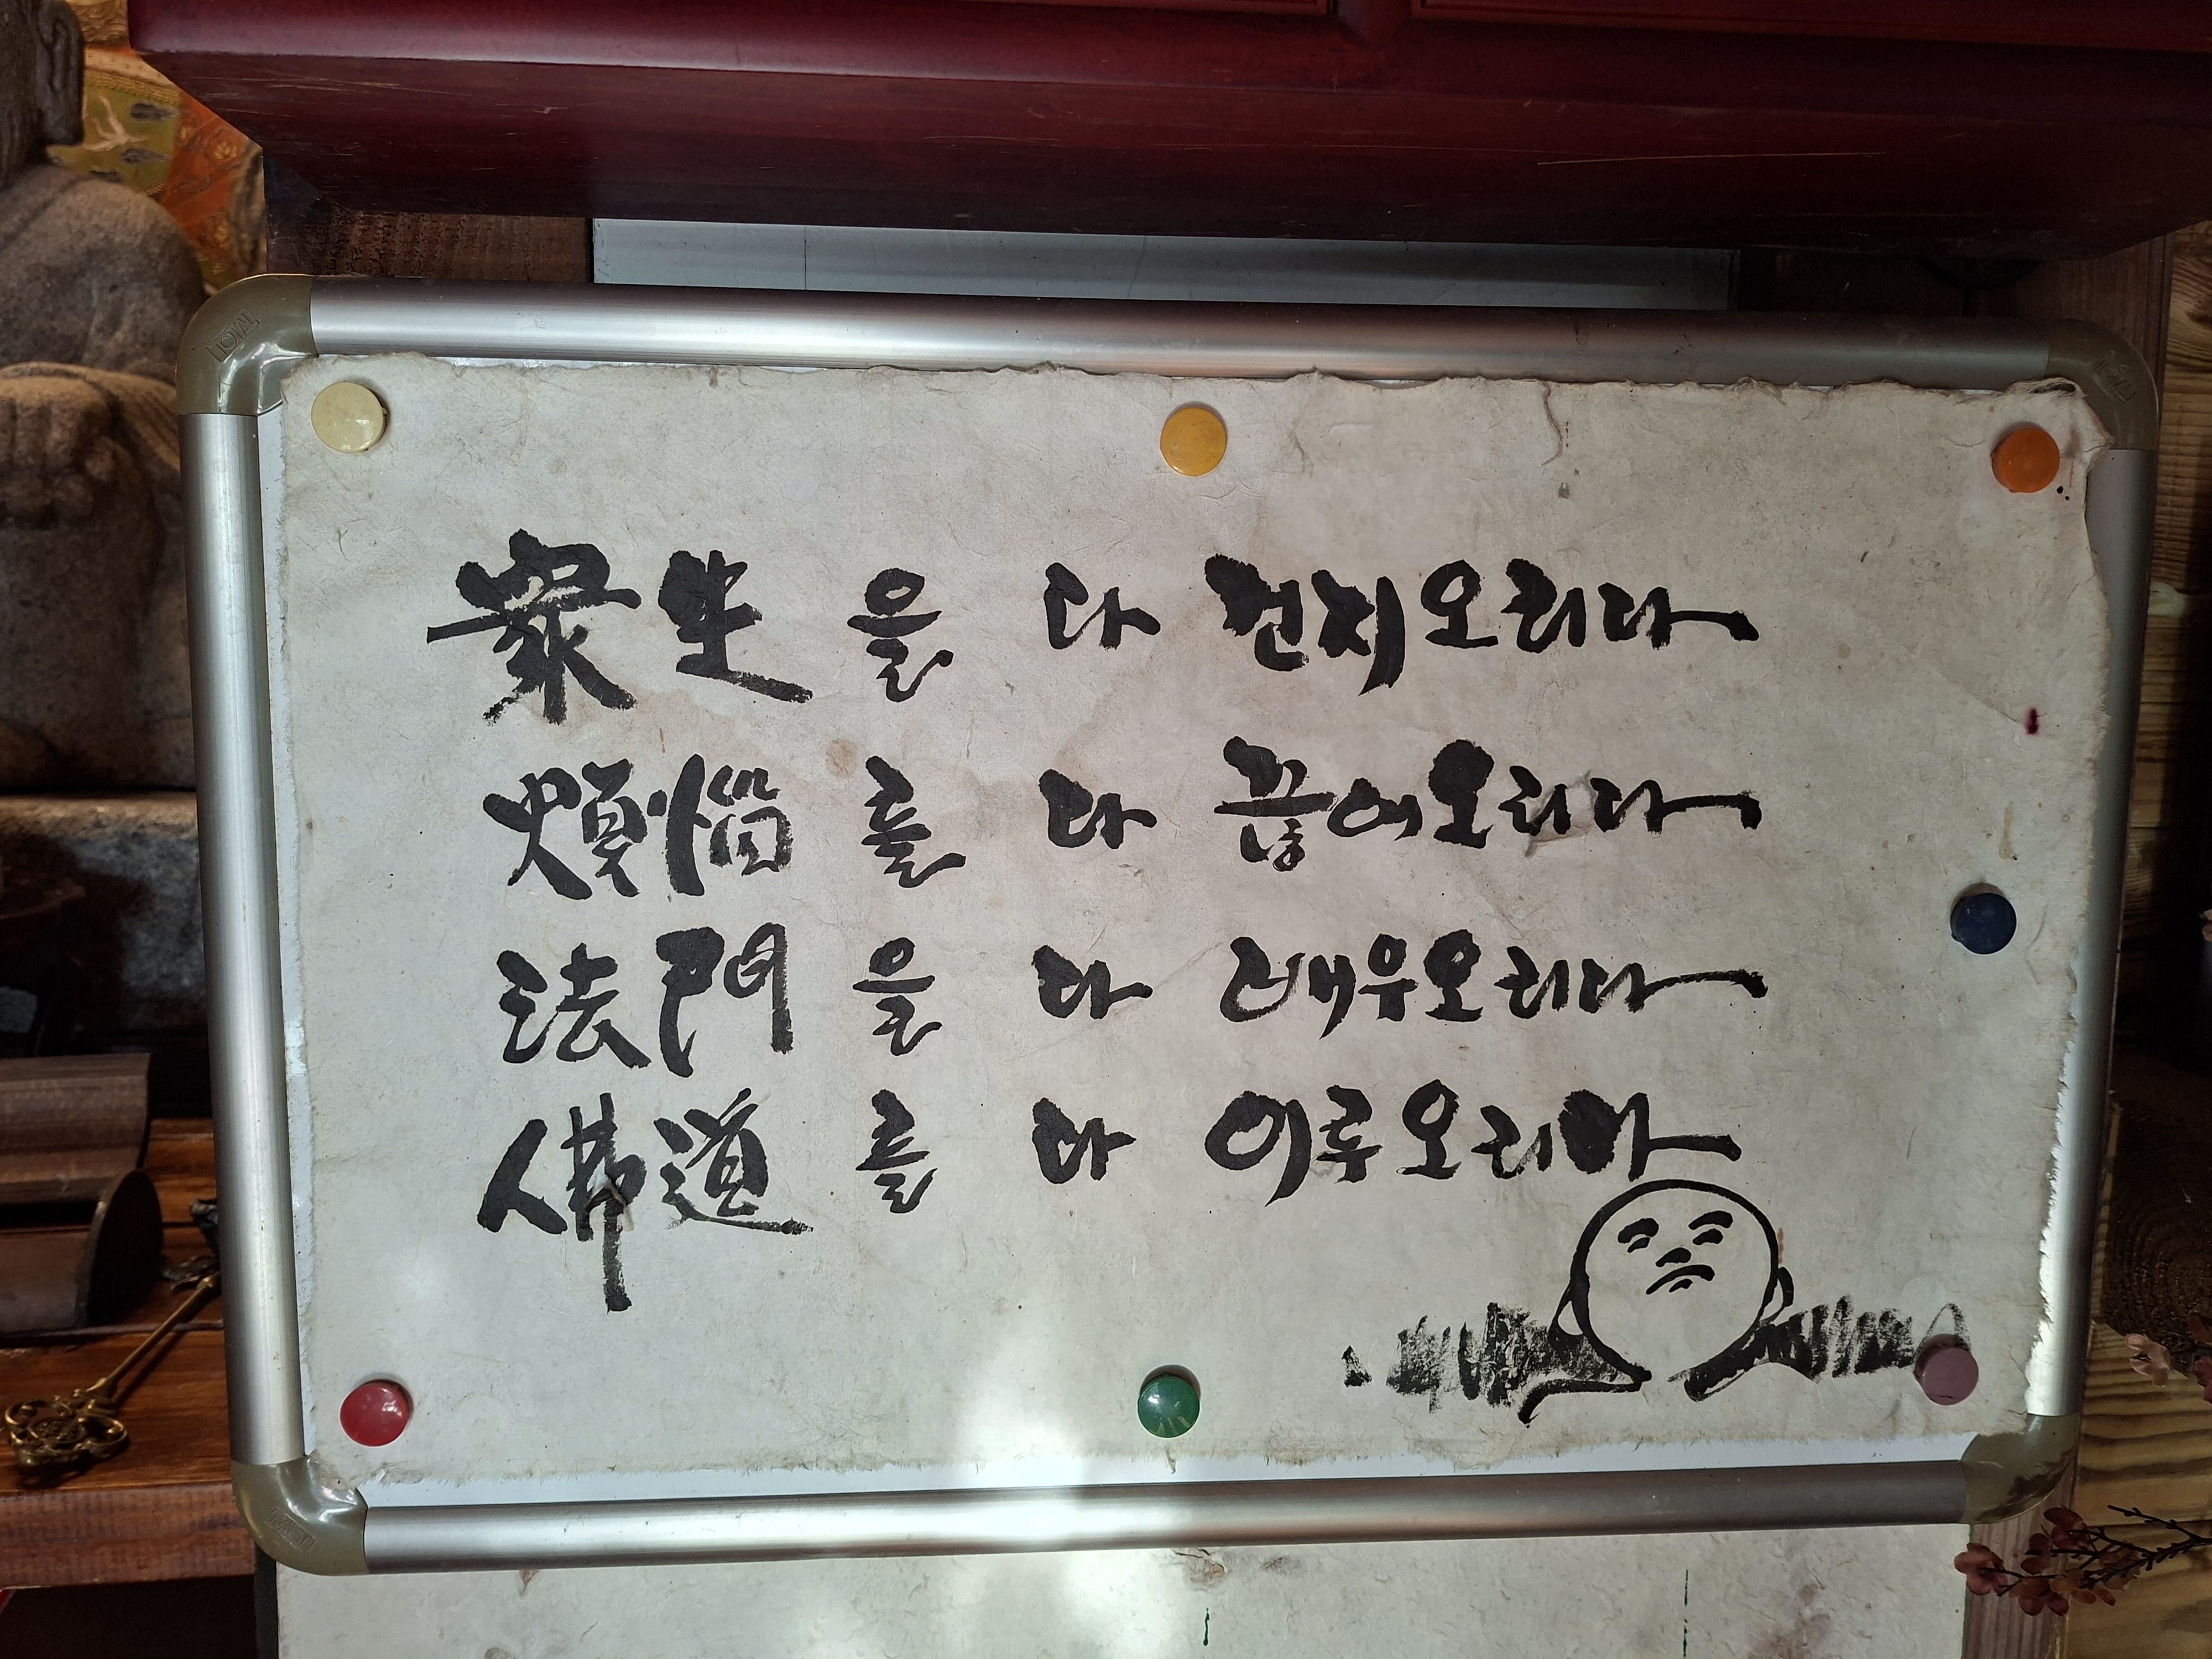 衆生을 다 건지오리다
煩惱를 다 끊어오리다
法門을 다 배우오리다
佛道를 다 이루오리다